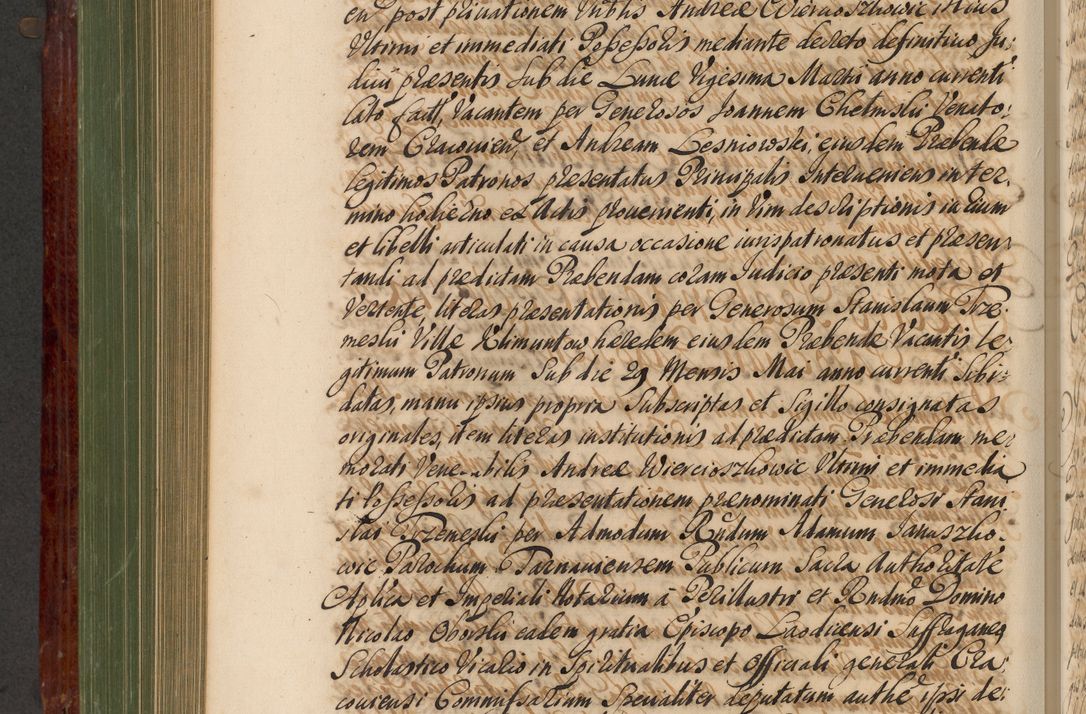 en post privationem Vnblis Andreae Wiercioszkowic illius
Vltimi et immediati Possessoris mediante decreto definitiuo Ju:
dicii praesentis sub die Lunae Vigesima Martii anno currenti
lato fact, Vacantem per Generosos Joannem Chelmski Venato:
rem Cracouien, et Andream Lesniowski, eiusdem Praebendae
legitimos Patronos praesentatus Principalis Interueniens in ter,
mino hodierno ex Actis prouenienti, in Vim descriptionis in Cium
et libelli articulati in causa occasione iurispatronatus et praesen
tandi ad praedictam Praebendam coram Judicio praesenti mota et
Vertente, literas praesentationis per Generosum Stanislaum Trze:
meski Villae Klimuntow haeredem eiusdem Praebendae Vacantis le
gitimum Patronum Sub die 29 Mensis Mai anno currenti Sibi
datas, manu ipsius propria Subscriptas et Sigillo consignatas
originales, item literas institutionis ad praedictam Praebendam me
morati Venerabilis Andreae Wiercioszkowic Vltimi et immedia
ti Possessoris ad praesentationem praenominati Generosi Stani
slai Trzemeski per Admodum Rndum Adamum Januszko:
wic Parochum Tarnauiensem Publicum Sacra Authoritate
Aplica et Imperiali Notarium a Perillustri et Rndmo Domino
Nicolao Oborski eadem gratia Episcopo Laodicensi Suffraganeo
Scholastico Vicario in Spiritualibus et Officiali generali Cra
couiensi Commissarium specialiter deputatum authe ipsi de: